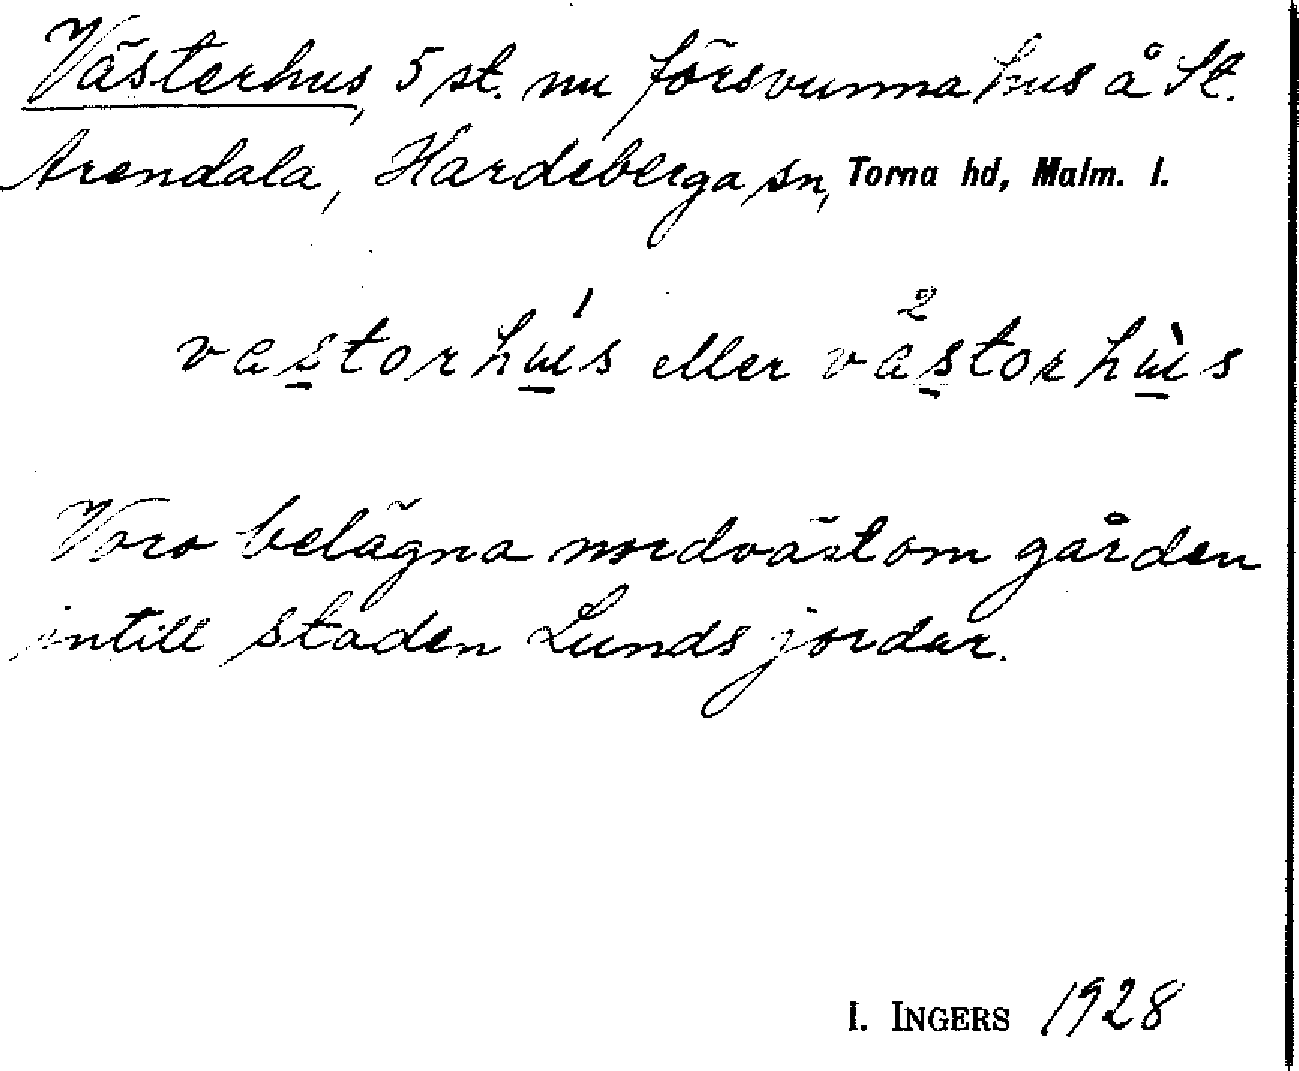 Västerhus, 5 st. nu försvunna hus å St.
Arendala, Hardeberga sn, Torna hd, Malm. l.
vastorhu̱ís eller våstorhu̱ìs
Voro belägna nordväst om gården
intill staden Lunds jordar.
I. INGERS 1928